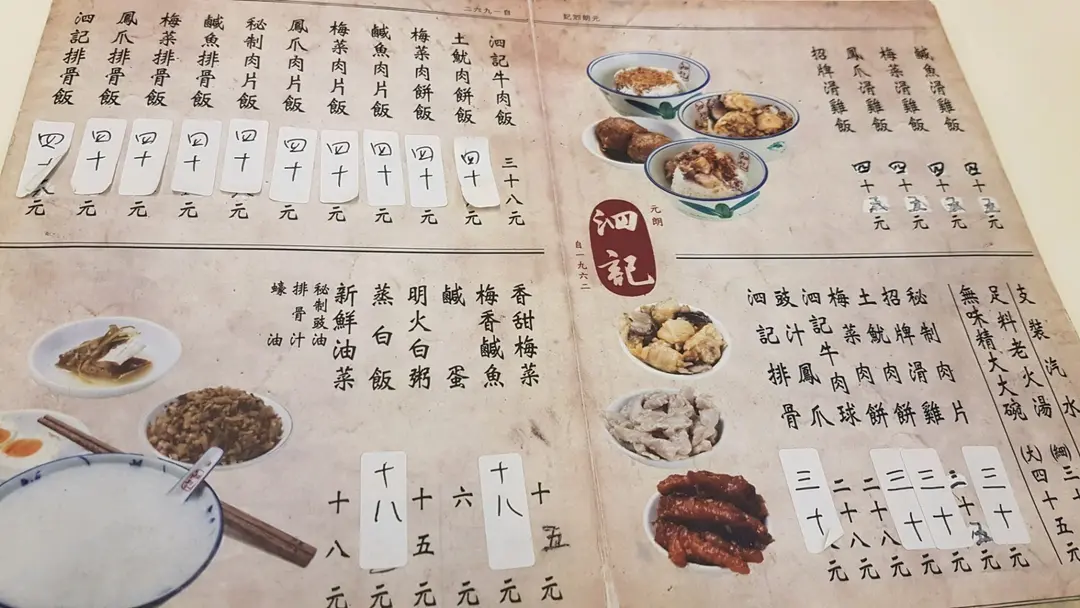 元朗泗記
鹹魚滑雞飯 四十五元
梅菜滑雞飯 四十五元
鳳爪滑雞飯 四十五元
招牌滑雞飯 四十五元
自一九六二
泗記牛肉飯 三十八元
土魷肉餅飯 四十元
梅菜肉餅飯 四十元
鹹魚肉片飯 四十元
梅菜肉片飯 四十元
鳳爪肉片飯 四十元
秘制肉片飯 四十元
鹹魚排骨飯 四十元
梅菜排骨飯 四十元
鳳爪排骨飯 四十元
泗記排骨飯 四十元
元朗
泗記
自一九六二
支裝汽水
足料老火湯 (細)三十五元
無味精大大碗 (大)四十五元
秘制肉片 三十元
招牌滑雞 三十五元
土魷肉餅 三十元
梅菜肉餅 三十元
泗記牛肉球 二十八元
豉汁鳳爪 二十八元
泗記排骨 三十元
香甜梅菜 十五元
梅香鹹魚 十八元
鹹蛋 六元
明火白粥 十五元
蒸白飯 十八元
新鮮油菜 十八元
秘制豉油
排骨汁
蠔油